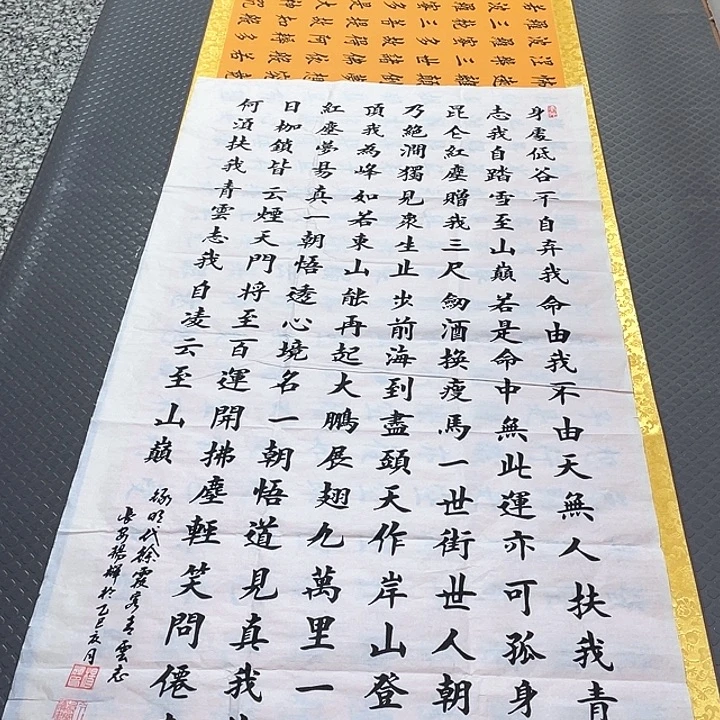 身處低谷不自弃我命由我不由天無人扶我青
志我自踏雪至山巔若是命中無此運亦可孤身
昆仑紅塵贈我三尺劒酒換瘦馬一世街世人朝
乃絕澗獨見衆生止步前海到盡頭天作岸山登
頂我為峰如若東山能再起大鵬展翅九萬里一
紅塵夢易真一朝悟透心境名一朝悟道見真我
日枷鎖皆云煙天門將至百運開拂塵輕笑問僊
何須扶我青雲志我自凌云至山巔
録明代徐霞客青雲志
長安楊輝於乙巳夏月